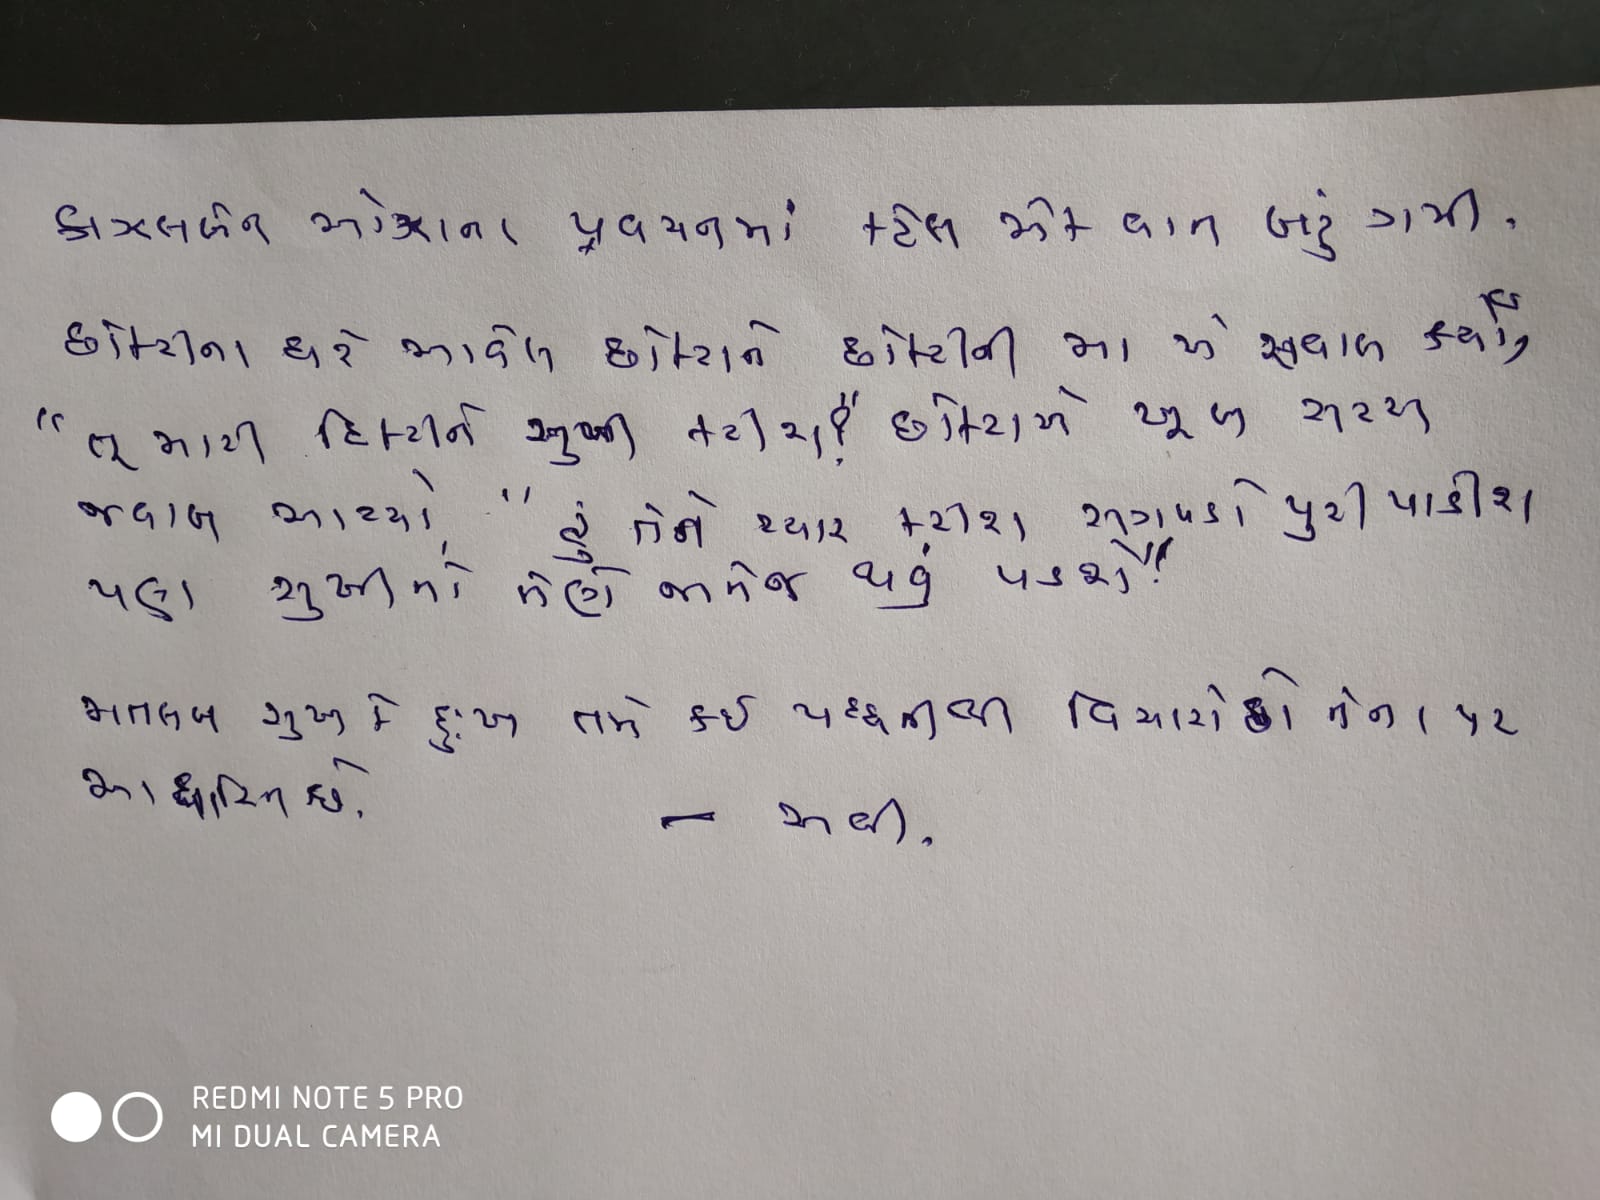 પ્રવચનમાં કહેલ એક વાત બહું ગમી.
છોકરીના ઘરે આવેલ છોકરાને છોકરીની મા એ સવાલ કર્યો કે,
"તૂ મારી દિકરીને સુખી કરીશ?" છોકરાએ ખૂબ સરસ
જવાબ આપ્યો, "હું તેને પ્યાર કરીશ સગવડો પુરી પાડીશ
પણ સુખીતો તેણે જાતેજ થવું પડશે!"
મતલબ સુખ કે દુઃખ તમે કઈ પધ્ધતીથી વિચારોછો તેના પર
આધારિતછે.
REDMI NOTE 5 PRO
MI DUAL CAMERA